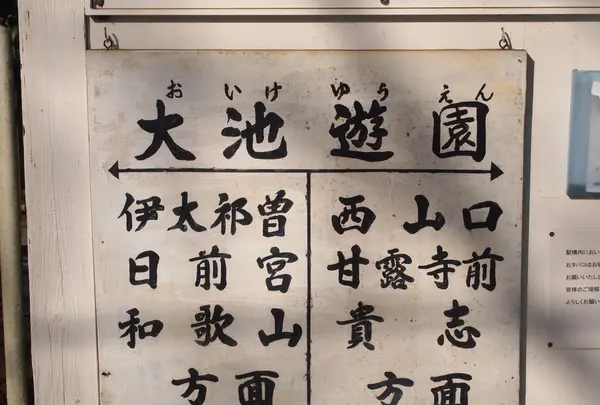 おいけゆうえん
大池遊園
伊太祁曽
日前宮
和歌山
方面
西山口
甘露寺前
貴志
方面
駅構内におい
おタバコはお
お願いいたしま
皆様のご理解
よろしくお願い